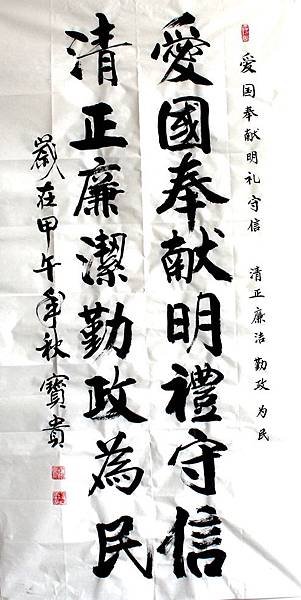 爱国奉献明礼守信 清正廉洁勤政为民
愛國奉献明禮守信
清正廉潔勤政為民
歲在甲午年秋寶貴